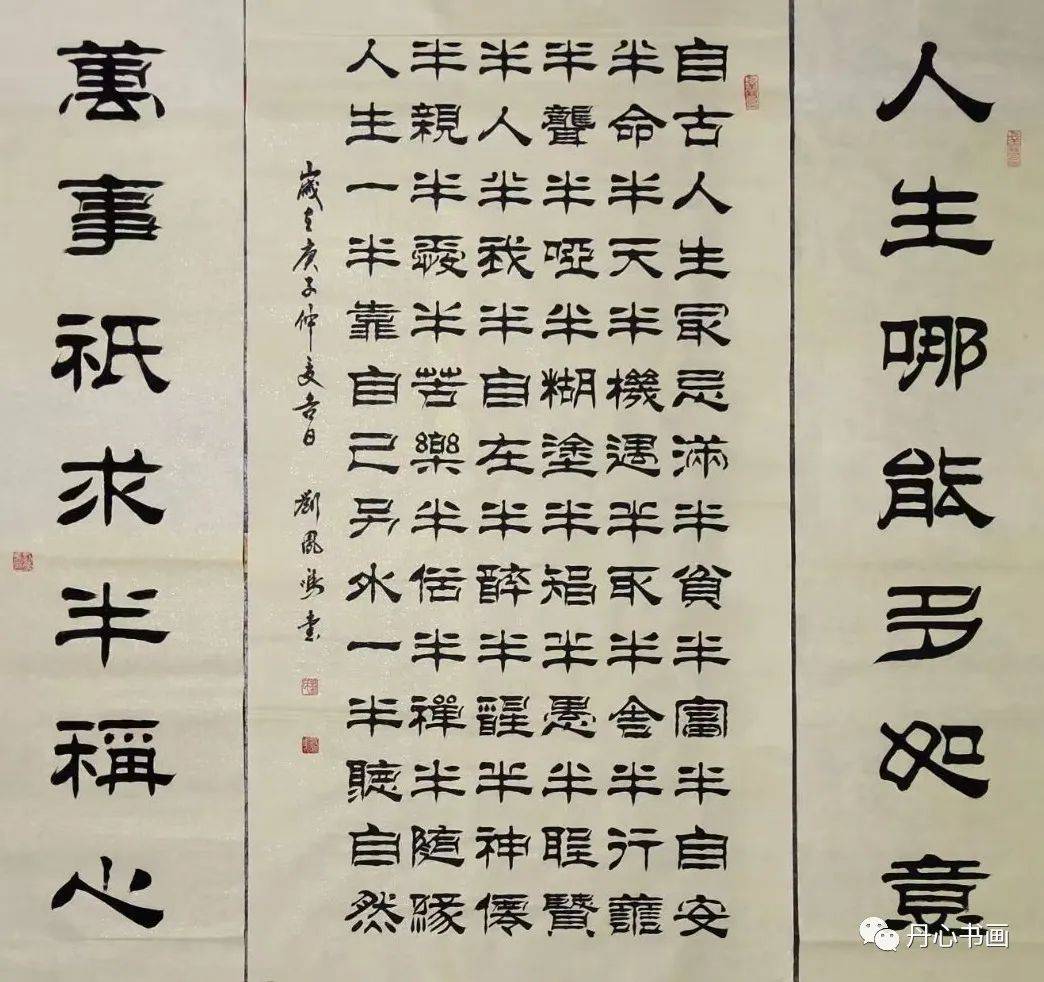 人生哪能多如意
自古人生最忌滿半貧半富半自安
半命半天半機遇半取半舍半行譱
半聾半啞半糊塗半智半愚半聖賢
半人半我半自在半醉半醒半神僊
半親半愛半苦樂半俗半禪半隨緣
人生一半靠自己另外一半聽自然
歲在庚子仲夏吉日 劉鳳書
萬事祇求半稱心
丹心书画